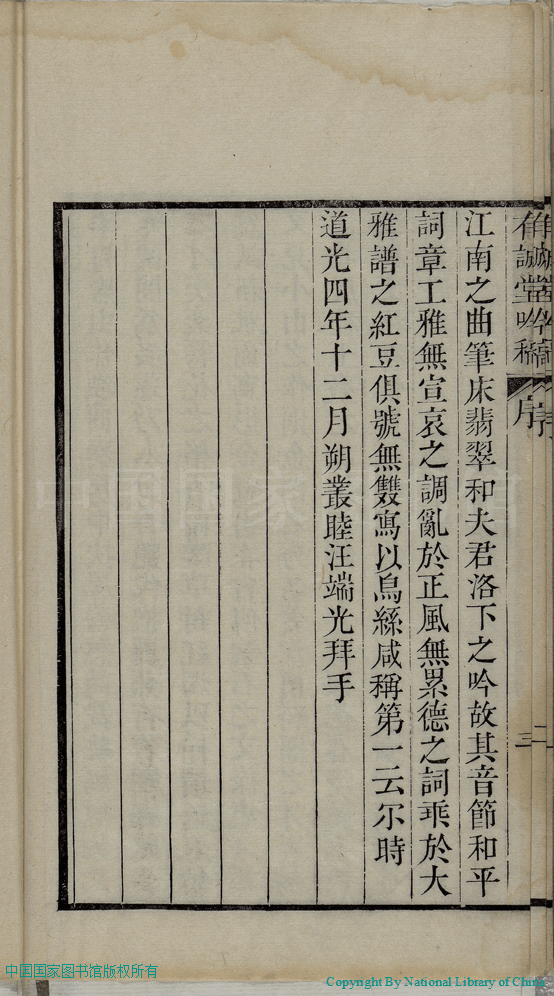 有誠堂吟稿 序 三
江南之曲筆床翡翠和夫君洛下之吟故其音節和平
詞章工雅無宣哀之調亂於正風無累德之詞乖於大
雅譜之紅豆俱號無雙寫以烏絲咸稱第一云尔時
道光四年十二月朔叢睦汪端光拜手
中国国家图书馆版权所有
Copyright By National Library of China